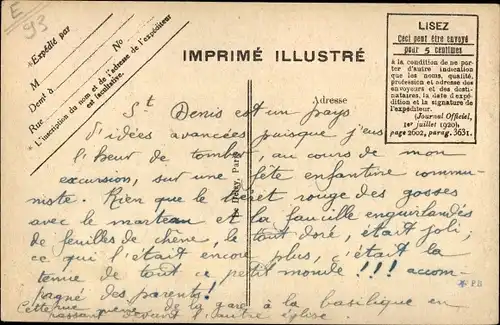 E
93
*Expédié par
M
Dem^t à
Rue N°
*L'inscription du nom et de l'adresse de l'expéditeur
est facultative.
IMPRIMÉ ILLUSTRÉ
LISEZ
Ceci peut être envoyé
pour 5 centimes
à la condition de ne por-
ter d'autre indication
que les noms, qualité,
profession et adresse des
envoyeurs et des desti-
nataires, la date d'expé-
dition et la signature de
l'expéditeur.
(Journal Officiel,
1er juillet 1920)
page 2602, parag. 3631.
Adresse
Paris
St Denis est un pays
d'idées avancées puisque j'eus
l'heur de tomber, au cours de mon
excursion, sur une fête enfantine commu-
niste. Rien que le béret rouge des gosses
avec le marteau et la faucille enguirlandés
de feuilles de chêne, le tout doré, était joli;
ce qui l'était encore plus, c'était la
tenue de tout ce petit monde !!! accom-
pagné des parents!
*PB
Cette rue mène de la gare à la basilique en
passant devant l'autre église.